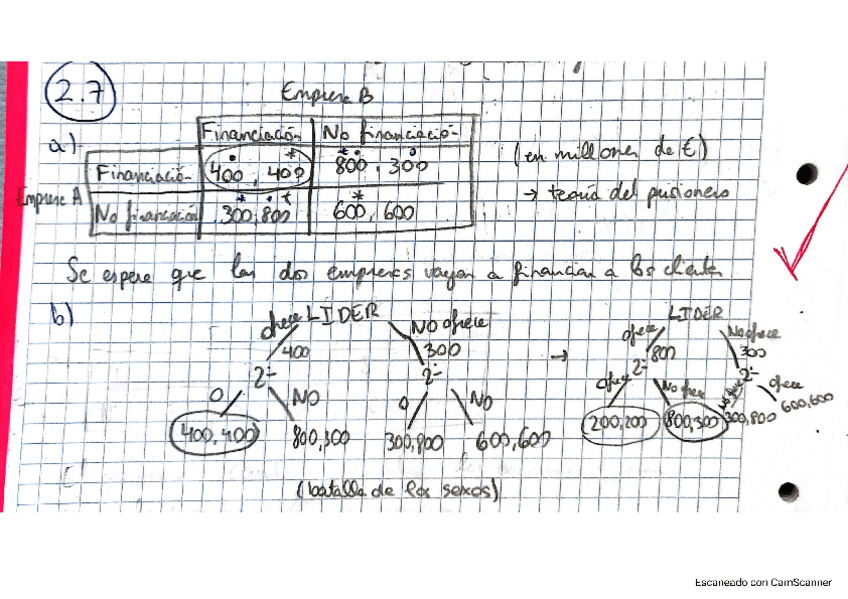 2.7
Empresa B
a)
Financiación No financiación
Financiación 400, 400 800, 300 (en millones de €)
Empresa A No financiación 300, 800 600, 600 → teoría del prisionero
Se espera que las dos empresas vayan a financiar a los clientes
b) LIDER LIDER
ofrece No ofrece ofrece No ofrece
400 300 → 800 300
2- 2- 2- 2-
O NO O NO ofrece No ofrece No ofrece ofrece
400,400 800,300 300,800 600,600 200,200 800,300 300,800 600,600
(batalla de los sexos)
Escaneado con CamScanner